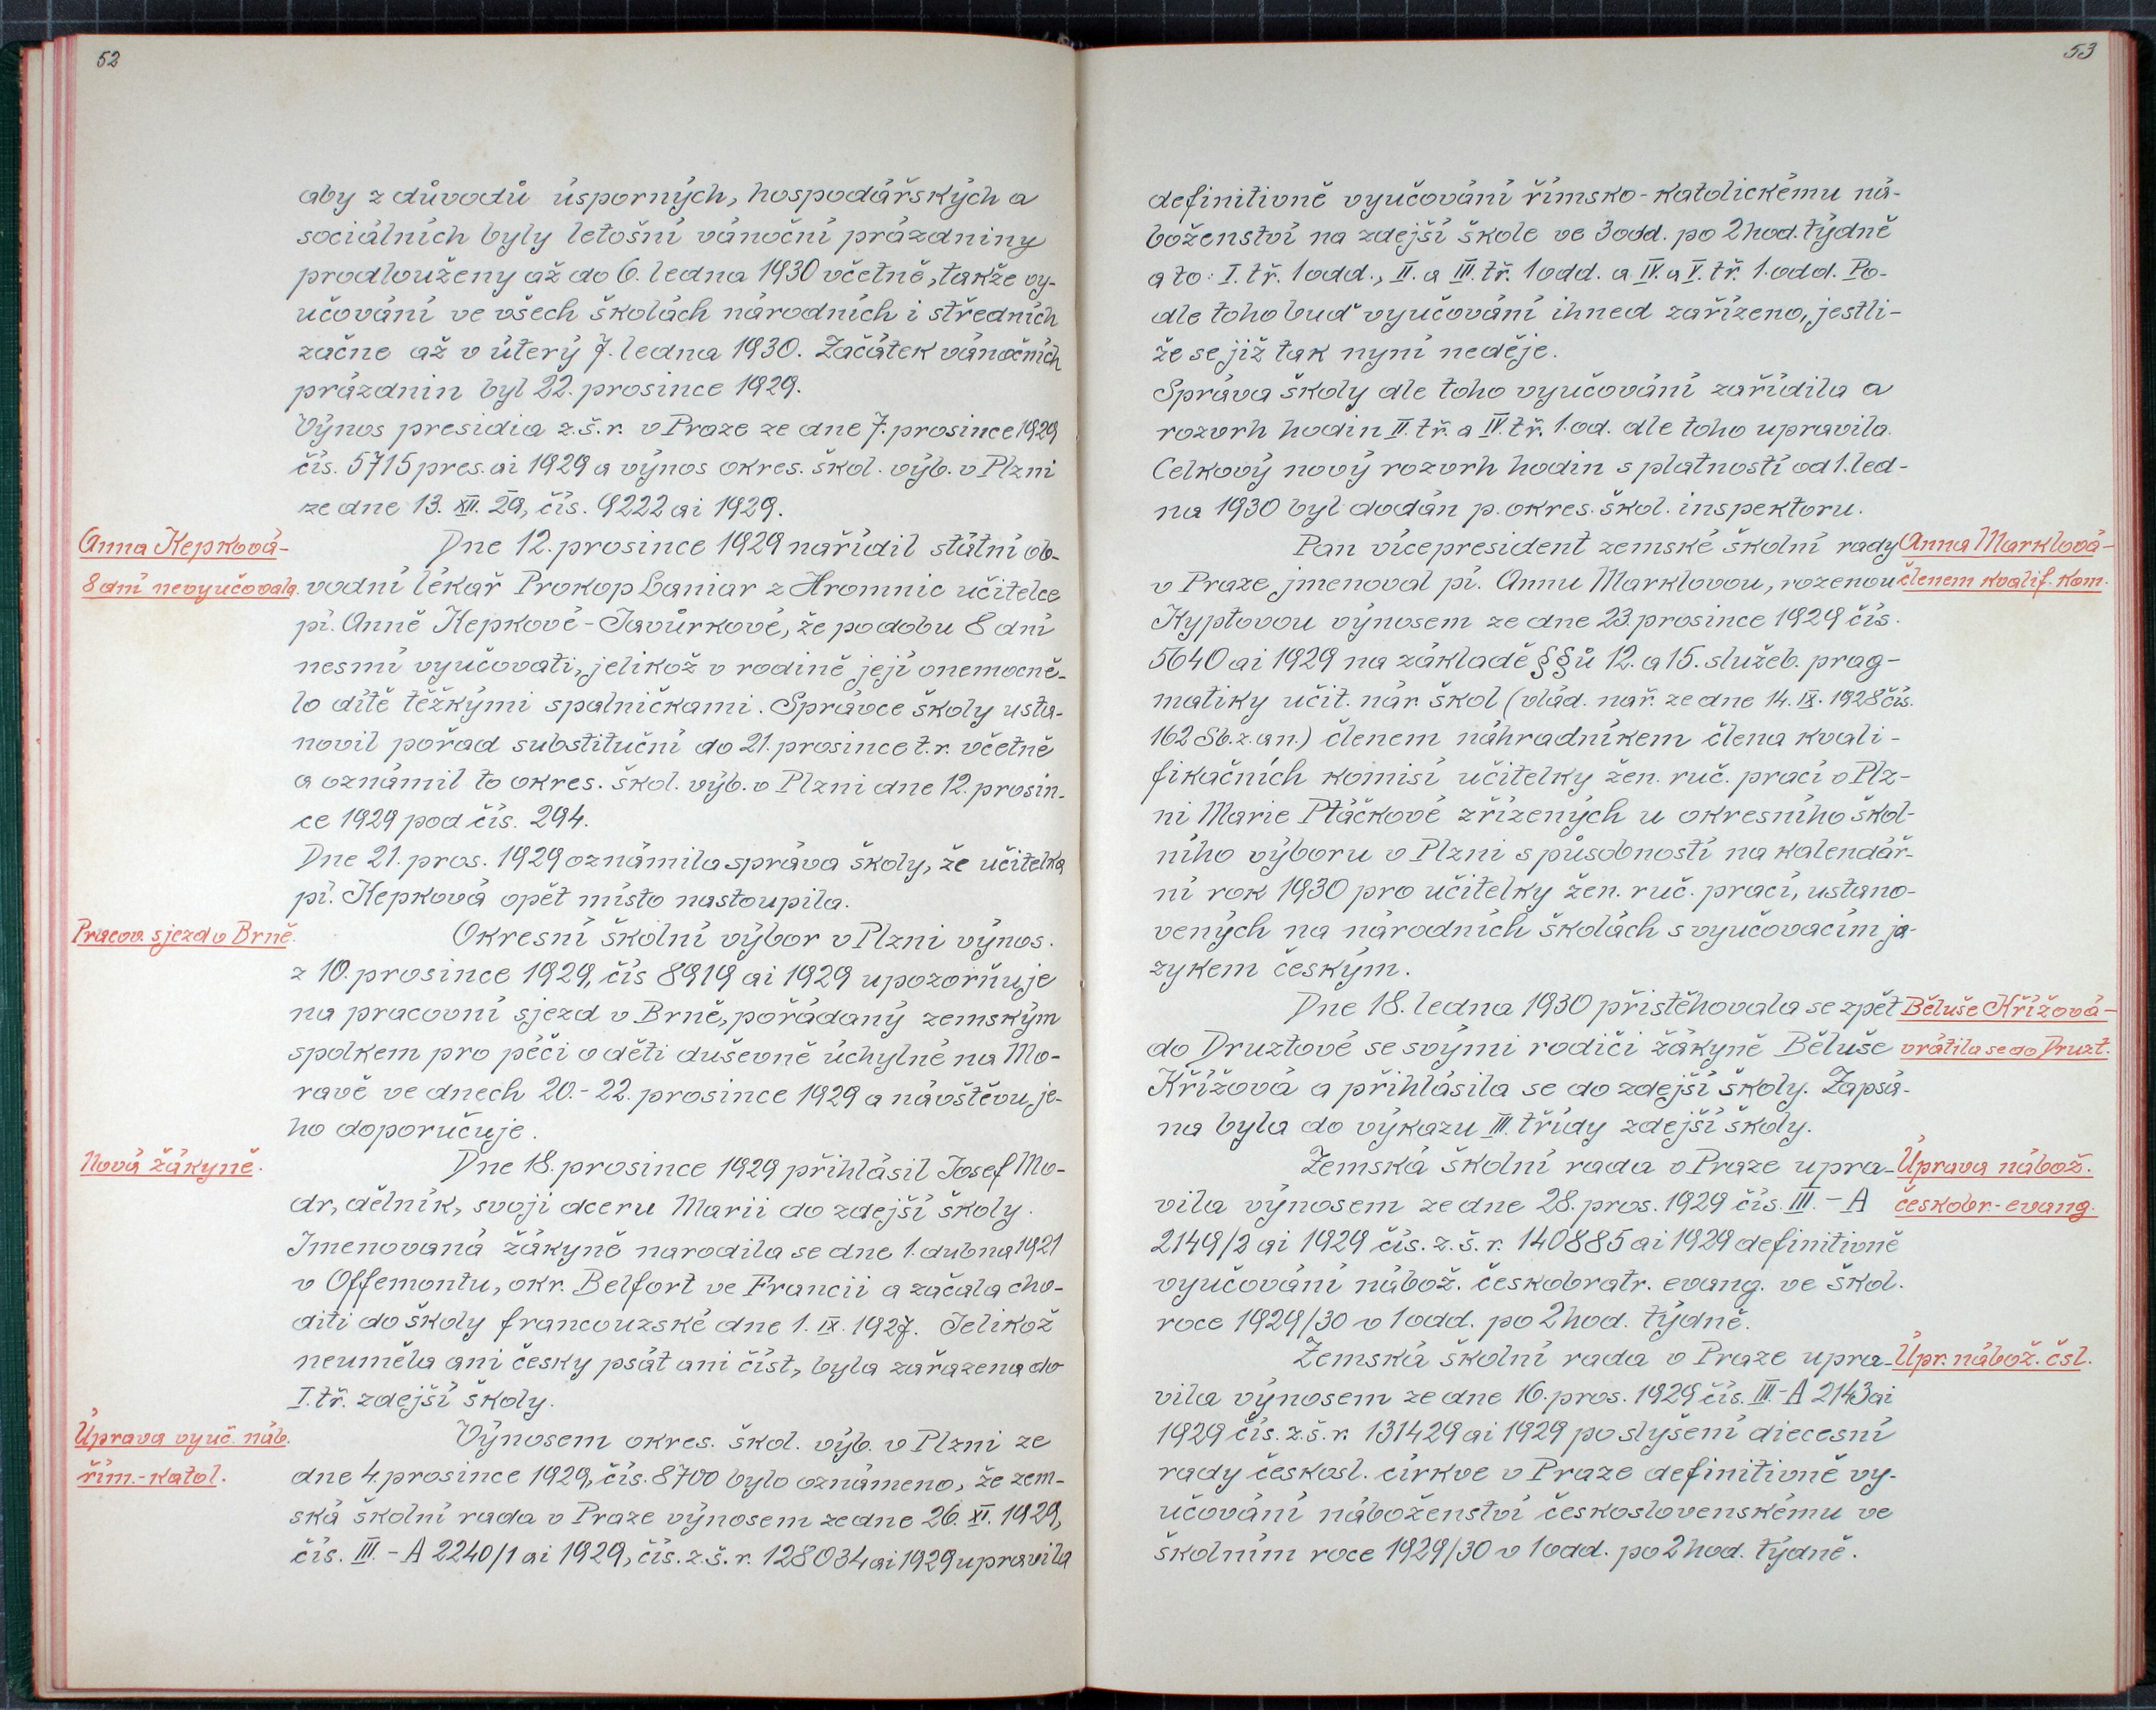 52
aby z důvodů úsporných, hospodářských a
sociálních byly letošní vánoční prázdniny
prodlouženy až do 6. ledna 1930 včetně, takže vy-
učování ve všech školách národních i středních
začne až v úterý 7. ledna 1930. Začátek vánočních
prázdnin byl 22. prosince 1929.
Výnos presidia z.š.r. v Praze ze dne 7. prosince 1929
čís. 5715 pres. ai 1929 a výnos okres. škol. výb. v Plzni
ze dne 13. XII. 29, čís. 9222 ai 1929.
Anna Kepková-
8 dní nevyučovala.
Dne 12. prosince 1929 nařídil státní ob-
vodní lékař Prokop Laniar z Hromnic učitelce
pí. Anně Kepkové-Javůrkové, že po dobu 8 dní
nesmí vyučovati, jelikož v rodině její onemocně-
lo dítě těžkými spalničkami. Správce školy usta-
novil pořad substituční do 21. prosince t.r. včetně
a oznámil to okres. škol. výb. v Plzni dne 12. prosin-
ce 1929 pod čís. 294.
Dne 21. pros. 1929 oznámila správa školy, že učitelka
pí. Kepková opět místo nastoupila.
Pracov. sjezd v Brně.
Okresní školní výbor v Plzni výnos.
z 10. prosince 1929, čís 8919 ai 1929 upozorňuje
na pracovní sjezd v Brně, pořádaný zemským
spolkem pro péči o děti duševně úchylné na Mo-
ravě ve dnech 20.-22. prosince 1929 a návštěvu je-
ho doporučuje.
Nová žákyně.
Dne 18. prosince 1929 přihlásil Josef Mo-
dr, dělník, svoji dceru Marii do zdejší školy.
Jmenovaná žákyně narodila se dne 1. dubna 1921
v Offemontu, okr. Belfort ve Francii a začala cho-
diti do školy francouzské dne 1. IX. 1927. Jelikož
neuměla ani česky psát ani číst, byla zařazena do
I. tř. zdejší školy.
Úprava vyuč. náb.
řím.-katol.
Výnosem okres. škol. výb. v Plzni ze
dne 4. prosince 1929, čís. 8700 bylo oznámeno, že zem-
ská školní rada v Praze výnosem ze dne 26. XI. 1929,
čís. III. - A 2240/1 ai 1929, čís. z.š.r. 128034 ai 1929 upravila
53
definitivně vyučování římsko-katolickému ná-
boženství na zdejší škole ve 3 odd. po 2 hod. týdně
a to: I. tř. 1 odd., II. a III. tř. 1 odd. a IV. a V. tř. 1. odd. Po-
dle toho buď vyučování ihned zařízeno, jestli-
že se již tak nyní neděje.
Správa školy dle toho vyučování zařídila a
rozvrh hodin II. tř. a IV. tř. 1. od. dle toho upravila.
Celkový nový rozvrh hodin s platností od 1. led-
na 1930 byl dodán p. okres. škol. inspektoru.
Pan vícepresident zemské školní rady
v Praze jmenoval pí. Annu Marklovou, rozenou
Kyptovou výnosem ze dne 23. prosince 1929 čís.
5640 ai 1929 na základě §§ů 12. a 15. služeb. prag-
matiky učit. nár. škol (vlád. nař. ze dne 14. IX. 1928 čís.
162 Sb. z. an.) členem náhradníkem člena kvali-
fikačních komisí učitelky žen. ruč. prací v Plz-
ni Marie Ptáčkové zřízených u okresního škol-
ního výboru v Plzni s působností na kalendář-
ní rok 1930 pro učitelky žen. ruč. prací, ustano-
vených na národních školách s vyučovacím ja-
zykem českým.
Anna Marklová-
členem kvalif. kom.
Dne 18. ledna 1930 přistěhovala se zpět
do Druztové se svými rodiči žákyně Běluše
Křížová a přihlásila se do zdejší školy. Zapsá-
na byla do výkazu III. třídy zdejší školy.
Běluše Křížová-
vrátila se do Druzt.
Zemská školní rada v Praze upra-
vila výnosem ze dne 28. pros. 1929 čís. III. - A
2149/2 ai 1929 čís. z.š.r. 140885 ai 1929 definitivně
vyučování nábož. českobratr. evang. ve škol.
roce 1929/30 v 1 odd. po 2 hod. týdně.
Úprava nábož.
českobr.-evang.
Zemská školní rada v Praze upra-
vila výnosem ze dne 16. pros. 1929 čís. III.-A 2143 ai
1929 čís. z.š.r. 131429 ai 1929 po slyšení diecesní
rady českosl. církve v Praze definitivně vy-
učování náboženství československému ve
školním roce 1929/30 v 1 odd. po 2 hod. týdně.
Úpr. nábož. čsl.